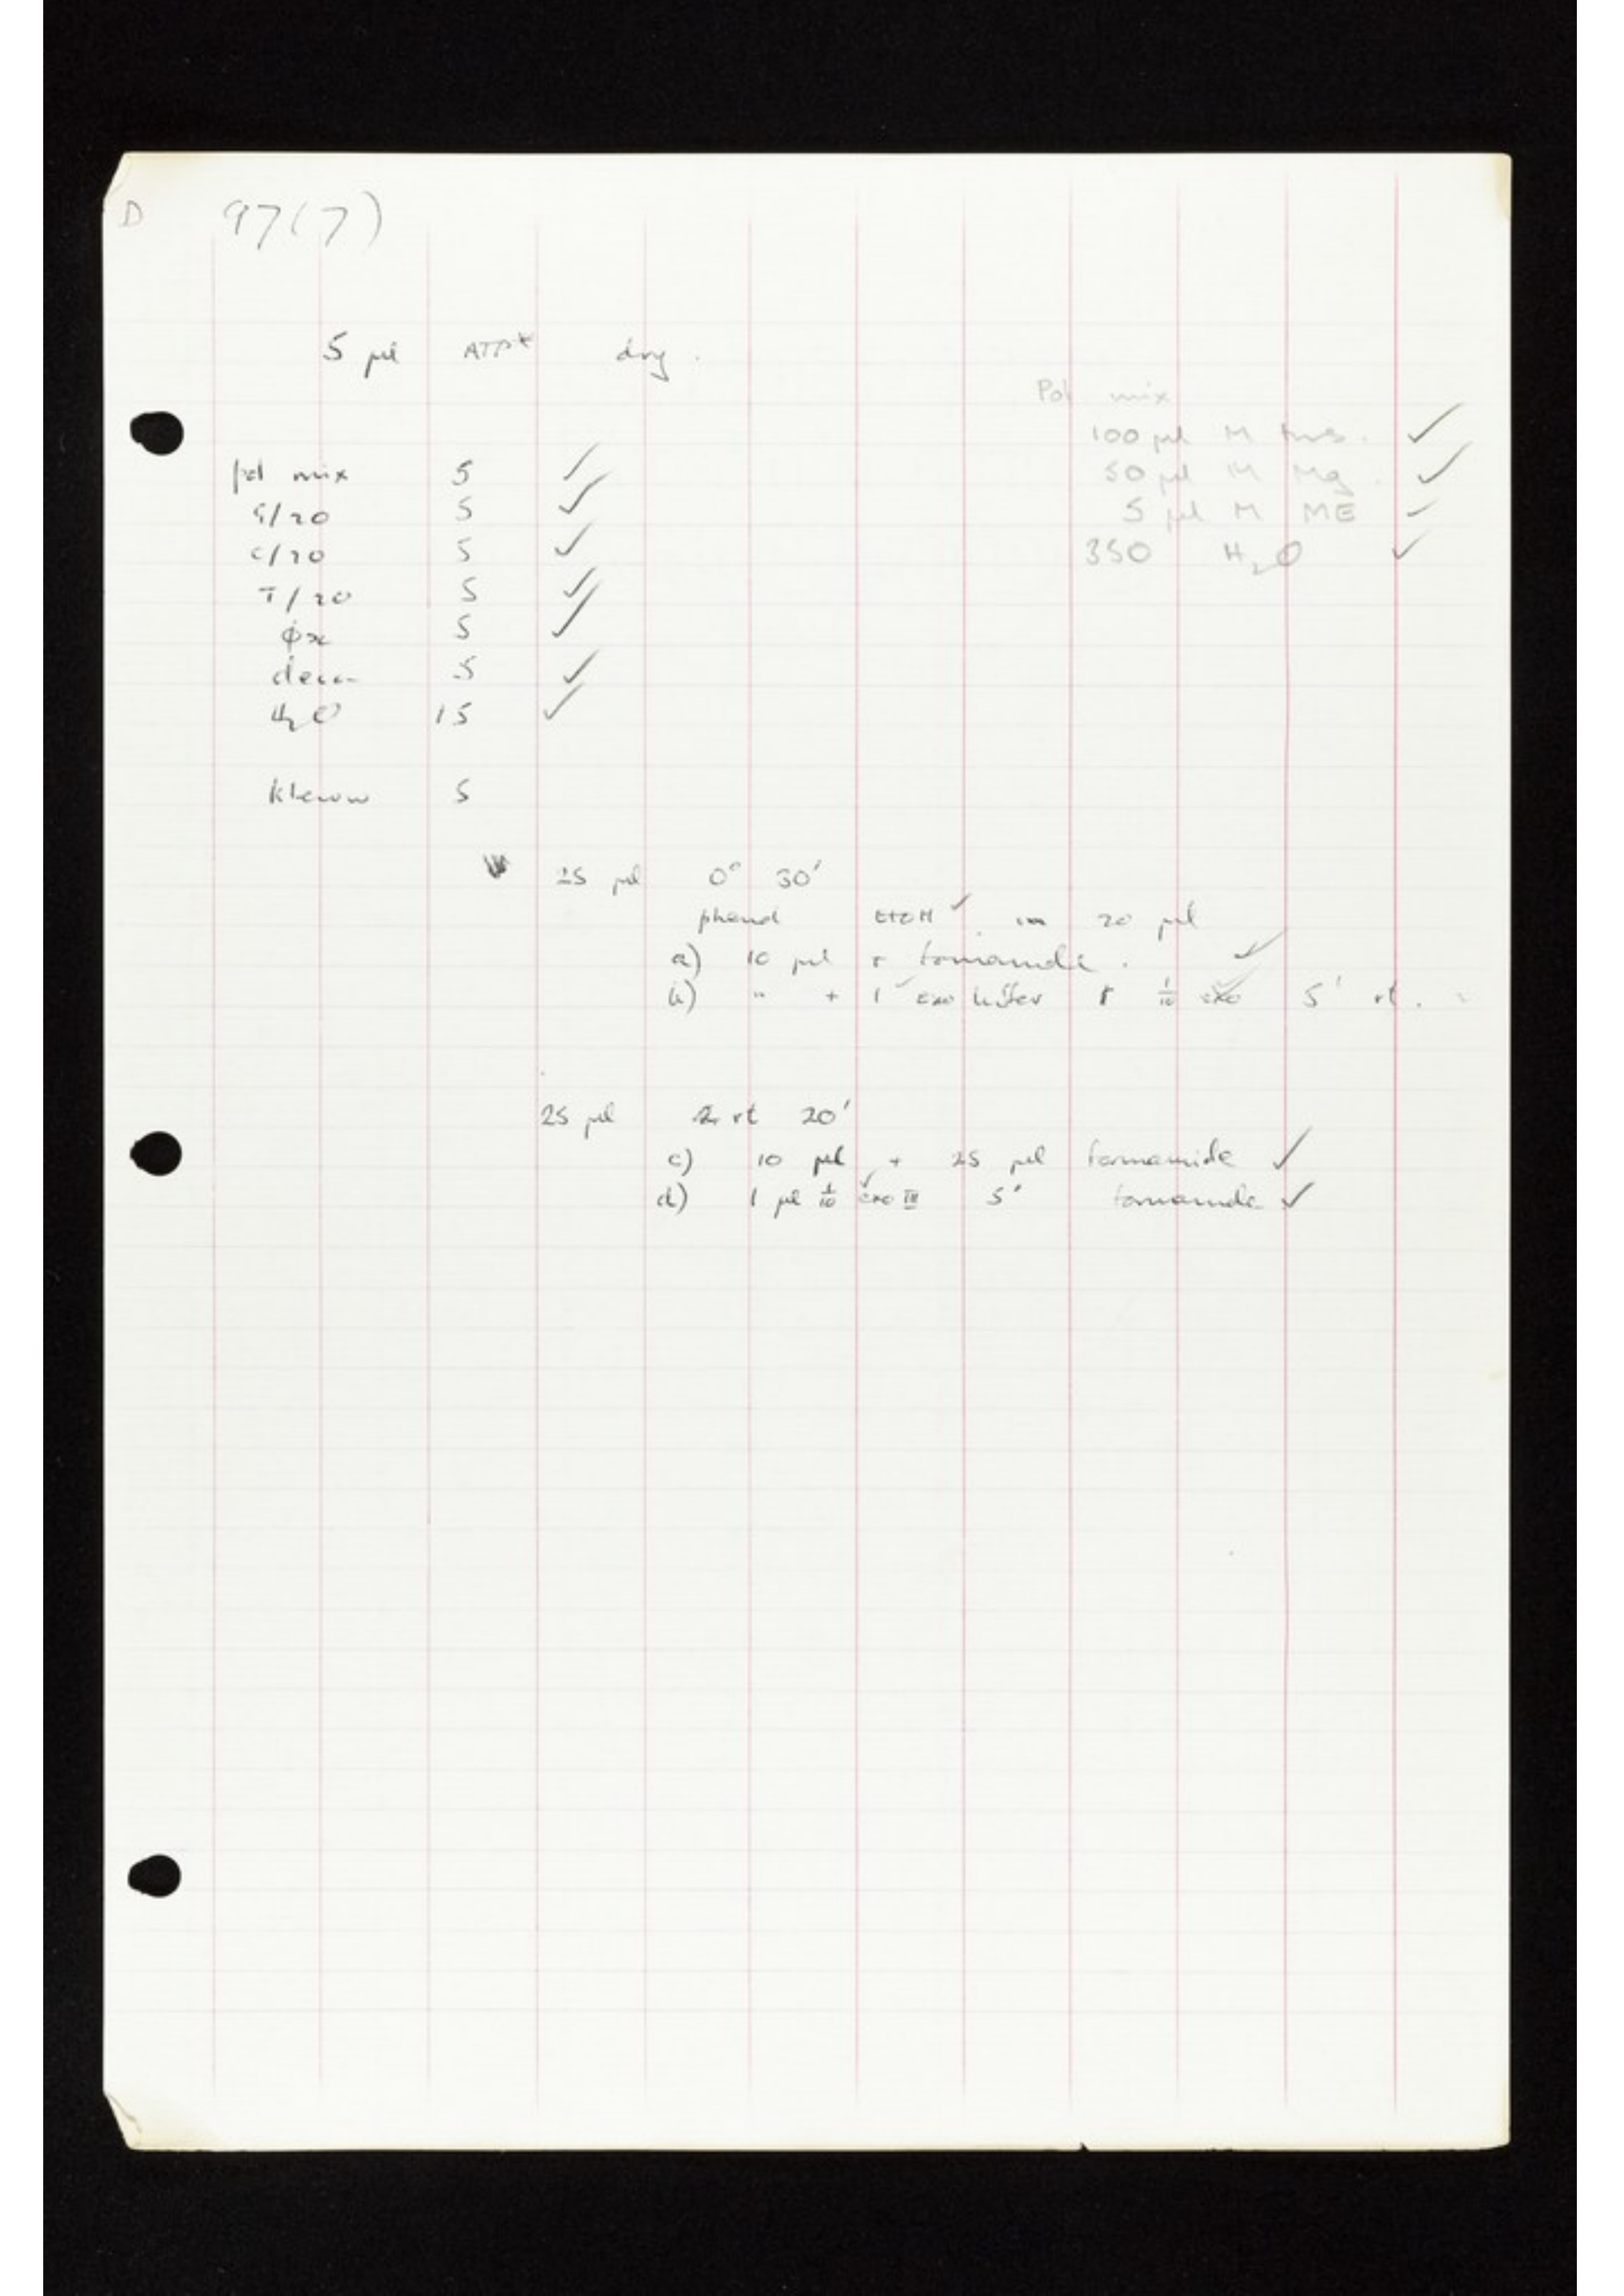 D 97(7)
5 µl ATP* dry .
Pol mix
100 µl M tris. ✓
50 µl M Mg. ✓
5 µl M ME ✓
350 H2O ✓
pol mix 5 ✓
G/20 5 ✓
C/20 5 ✓
T/20 5 ✓
φx 5 ✓
deca 5 ✓
H2O 15 ✓
Klenow 5
25 µl 0° 30'
phenol EtOH ✓ in 20 µl
a) 10 µl + formamide . ✓
b) " + 1 ✓ exo buffer + 1/10 exo 5' rt .
25 µl rt 20'
c) 10 µl + 25 µl formamide ✓
d) 1 µl 1/10 exo III 5' formamide ✓